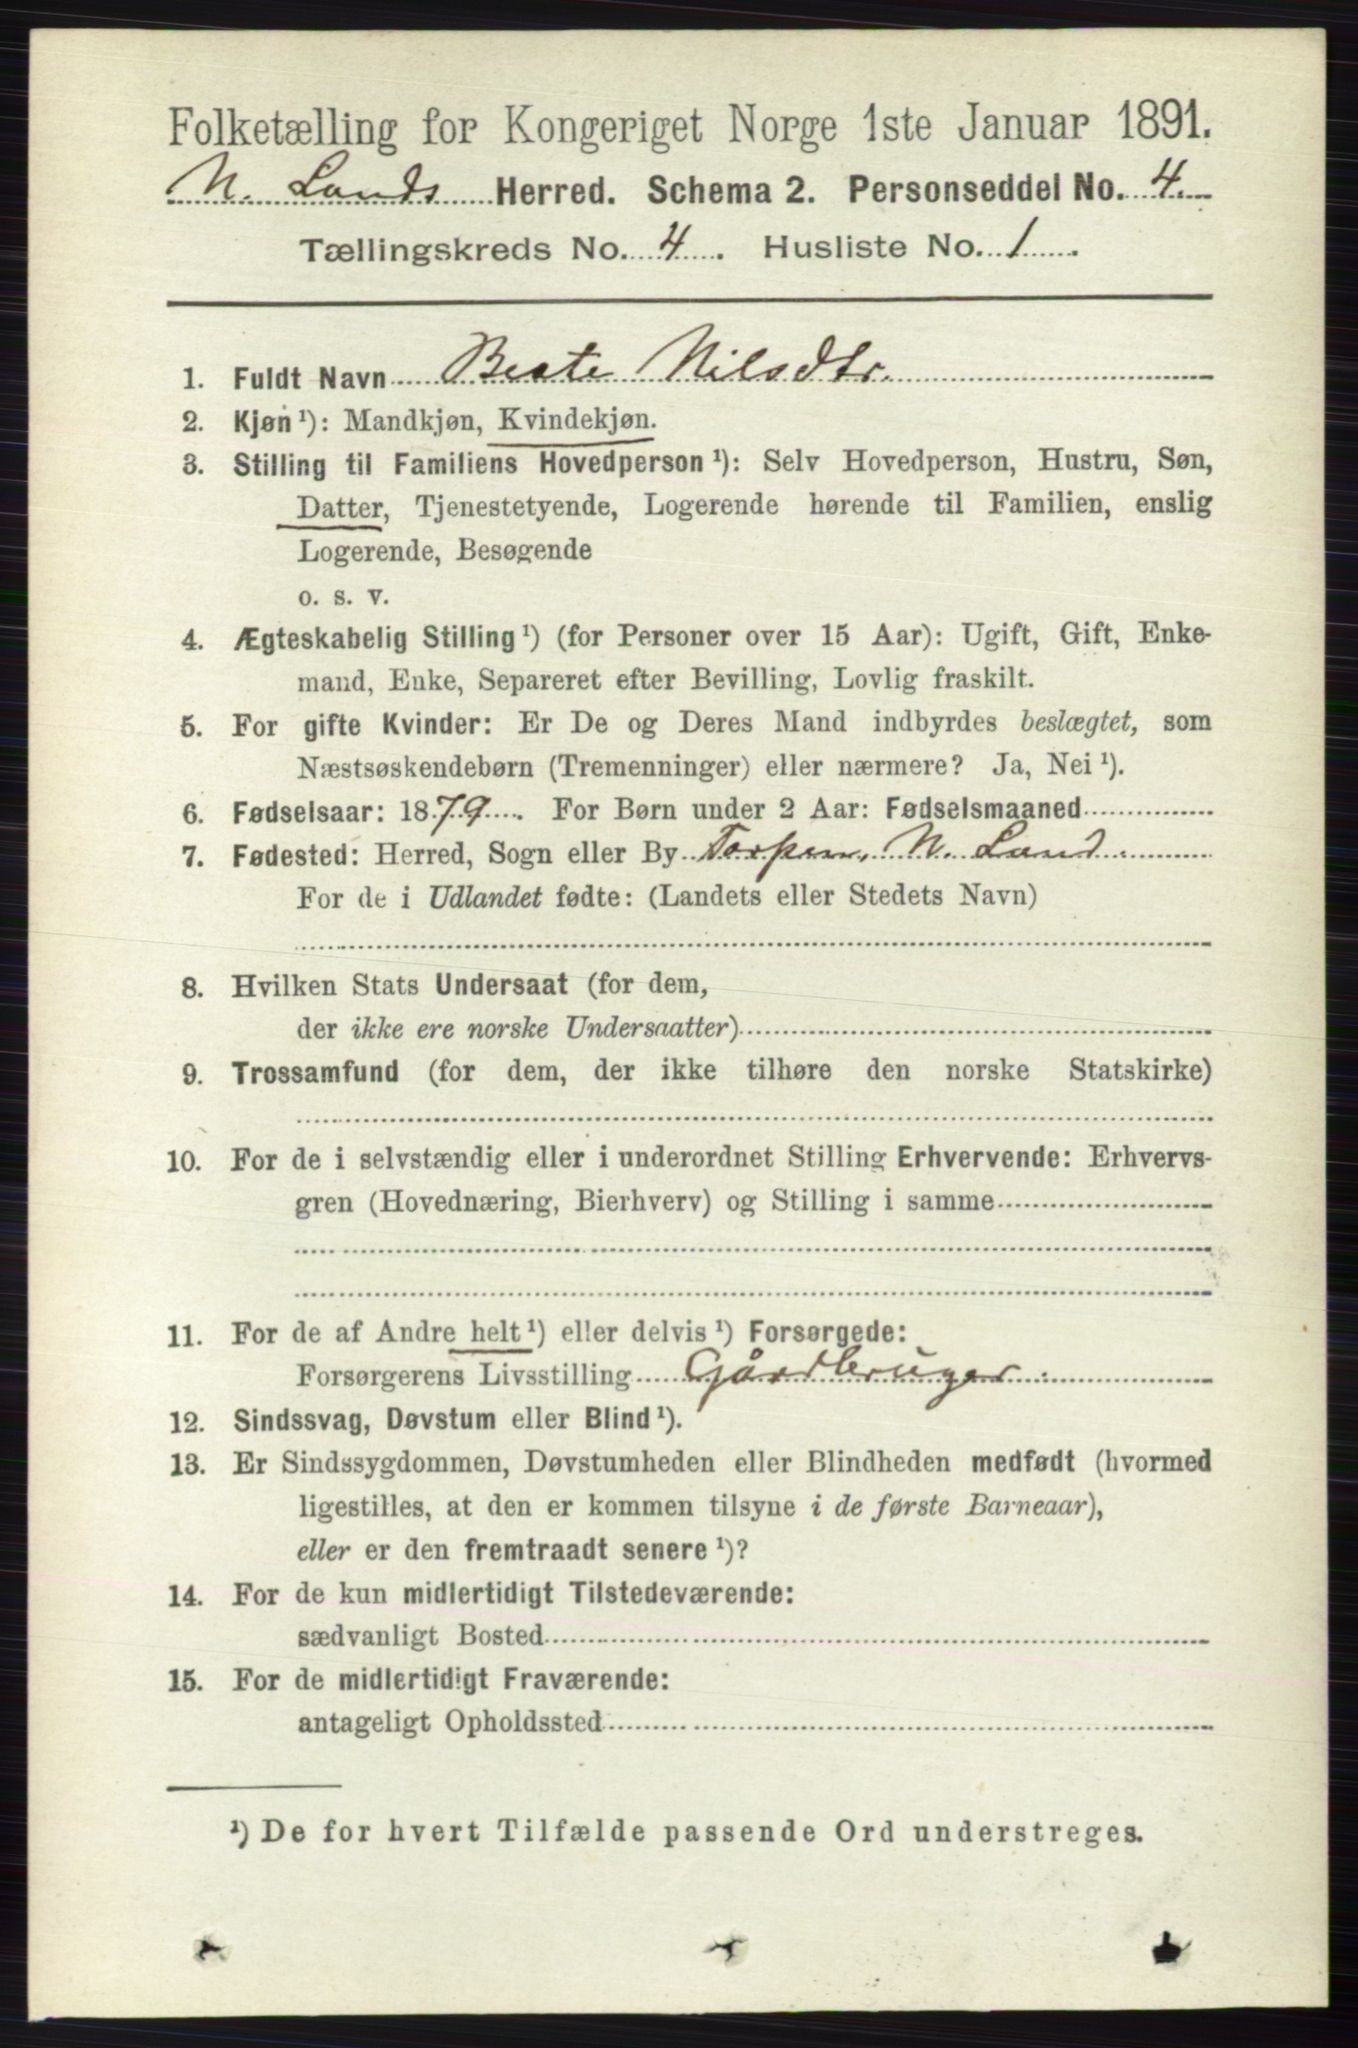 Folketælling for Kongeriget Norge 1ste Januar 1891.
N. Lands Herred. Schema 2. Personseddel No. 4.
Tællingskreds No. 4. Husliste No. 1.
1. Fuldt Navn Beate Nilsdtr.
2. Kjøn ¹): Mandkjøn, Kvindekjøn.
3. Stilling til Familiens Hovedperson ¹): Selv Hovedperson, Hustru, Søn,
Datter, Tjenestetyende, Logerende hørende til Familien, enslig
Logerende, Besøgende
o. s. v.
4. Ægteskabelig Stilling ¹) (for Personer over 15 Aar): Ugift, Gift, Enke-
mand, Enke, Separeret efter Bevilling, Lovlig fraskilt.
5. For gifte Kvinder: Er De og Deres Mand indbyrdes beslægtet, som
Næstsøskendebørn (Tremenninger) eller nærmere? Ja, Nei ¹).
6. Fødselsaar: 1879. For Børn under 2 Aar: Fødselsmaaned
7. Fødested: Herred, Sogn eller By Torpen, N. Land.
For de i Udlandet fødte: (Landets eller Stedets Navn)
8. Hvilken Stats Undersaat (for dem,
der ikke ere norske Undersaatter)
9. Trossamfund (for dem, der ikke tilhøre den norske Statskirke)
10. For de i selvstændig eller i underordnet Stilling Erhvervende: Erhvervs-
gren (Hovednæring, Bierhverv) og Stilling i samme
11. For de af Andre helt ¹) eller delvis ¹) Forsørgede:
Forsørgerens Livsstilling Gårdbruger.
12. Sindssvag, Døvstum eller Blind ¹).
13. Er Sindssygdommen, Døvstumheden eller Blindheden medfødt (hvormed
ligestilles, at den er kommen tilsyne i de første Barneaar),
eller er den fremtraadt senere ¹)?
14. For de kun midlertidigt Tilstedeværende:
sædvanligt Bosted
15. For de midlertidigt Fraværende:
antageligt Opholdssted
¹) De for hvert Tilfælde passende Ord understreges.